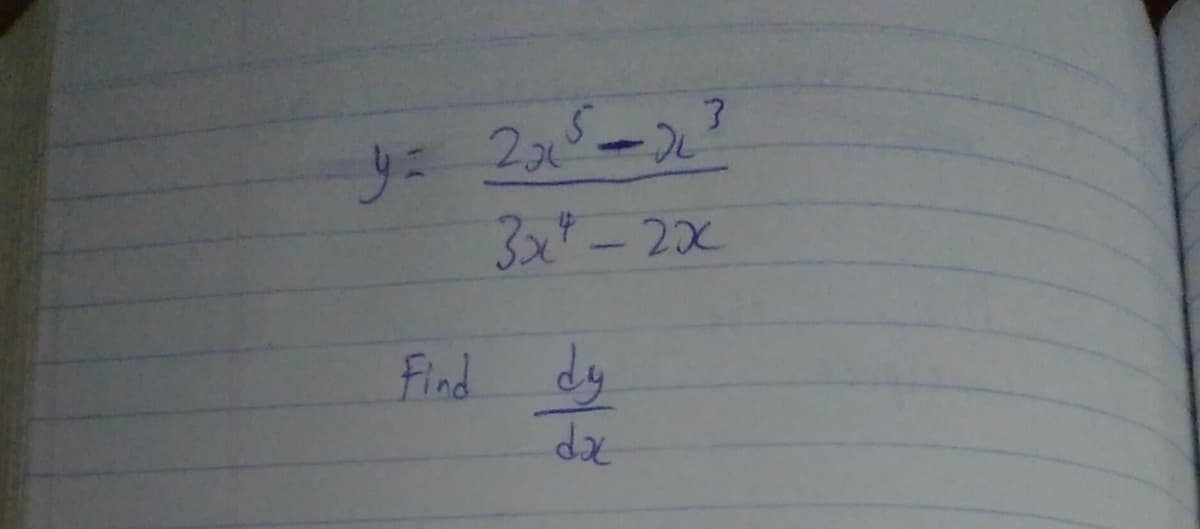 y = 2x⁵ - x³
3x⁴ - 2x
Find dy
dx